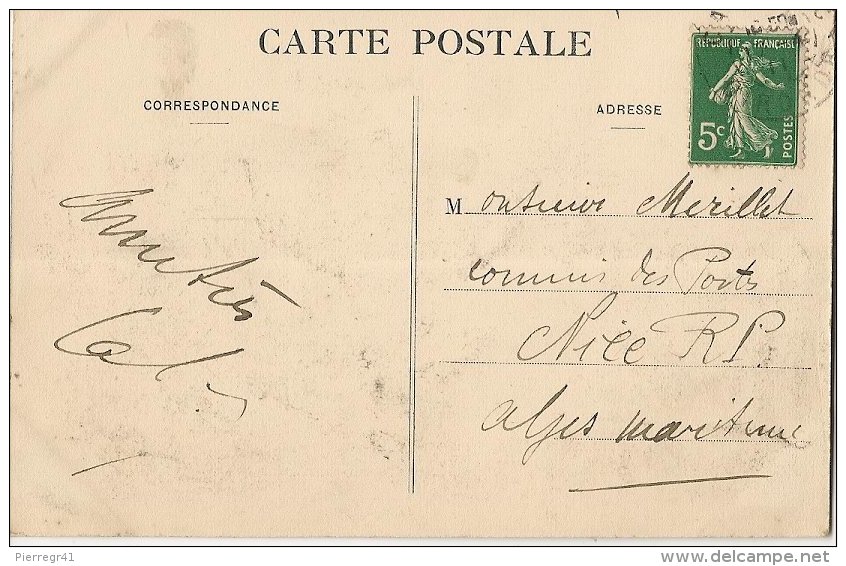 CARTE POSTALE
CORRESPONDANCE
ADRESSE
REPUBLIQUE FRANÇAISE
5c
POSTES
Amitiés
Monsieur Merillet
commis des Postes
Nice RP.
Alpes maritime
Pierregr41
www.delcampe.net